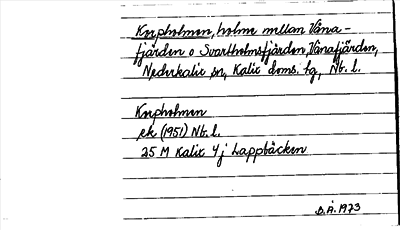 Kurpholmen, holme mellan Våna-
fjärden o Svartholmsfjärden, Vånafjärden,
Nederkalix sn, Kalix doms. tg, Nb. l.
Kurpholmen
ek (1951) Nb. l.
25 M Kalix 4 j Lappbäcken
B.Å. 1973